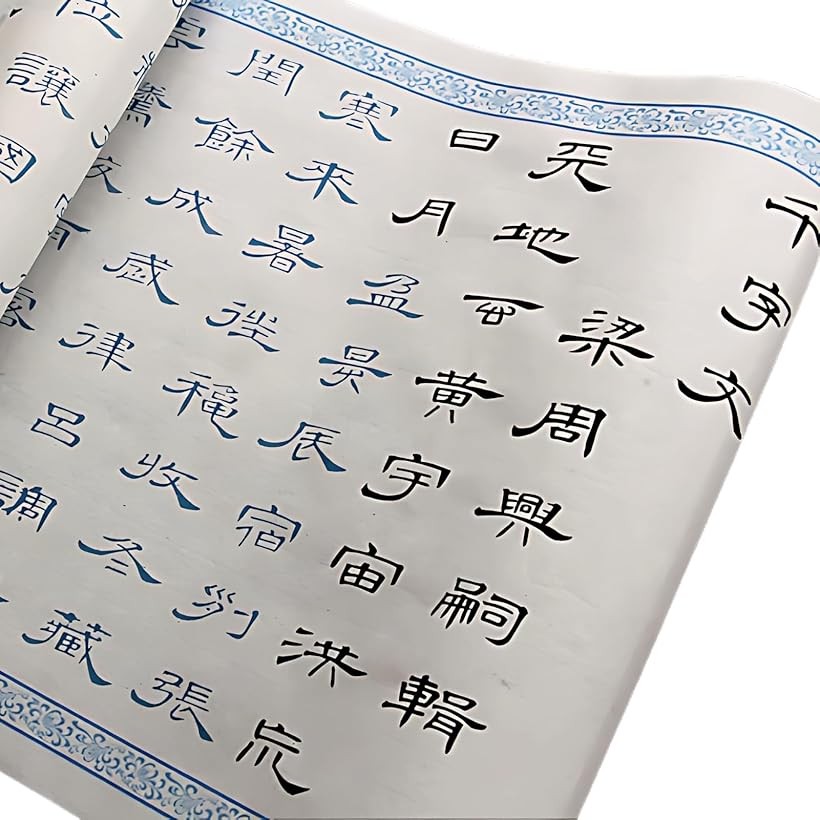 千字文
梁周興嗣輯
天地玄黄宇宙洪荒
日月盈昃辰宿列張
寒來暑往秋收冬藏
閏餘成歲律呂調
位讓國